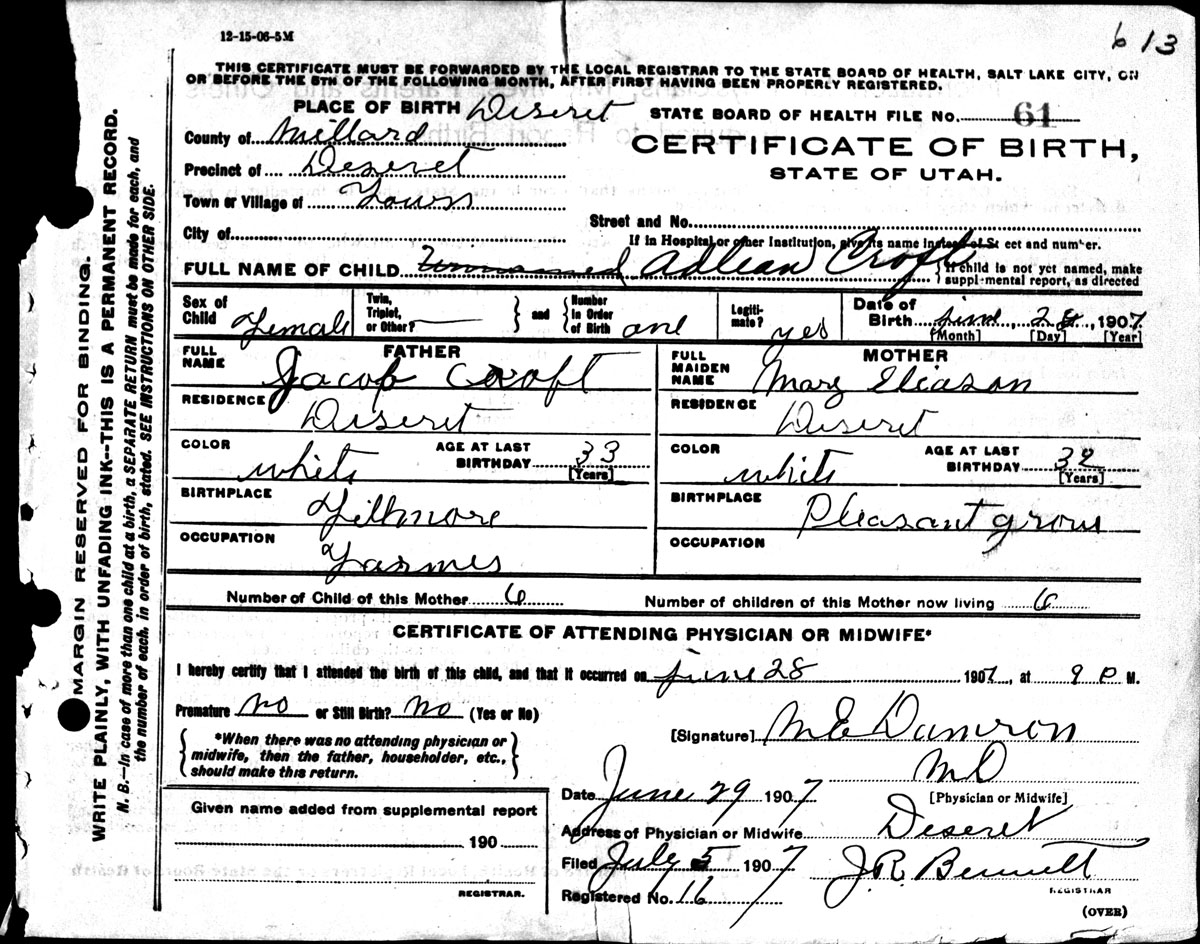 12-15-06-5M
613
THIS CERTIFICATE MUST BE FORWARDED BY THE LOCAL REGISTRAR TO THE STATE BOARD OF HEALTH, SALT LAKE CITY, ON
OR BEFORE THE 5TH OF THE FOLLOWING MONTH, AFTER FIRST HAVING BEEN PROPERLY REGISTERED.
PLACE OF BIRTH Deseret
STATE BOARD OF HEALTH FILE No. 61
County of Millard
CERTIFICATE OF BIRTH,
Precinct of Deseret
STATE OF UTAH.
Town or Village of
Street and No.
City of
If in Hospital or other Institution, give its name instead of St eet and number.
FULL NAME OF CHILD Unnamed Adlean Croft
{If child is not yet named, make
suppl-mental report, as directed
Sex of Child Female
Twin, Triplet, or Other?
} and {
Number in Order of Birth one
Legiti-mate? yes
Date of Birth June, 28, 1907
[Month] [Day] [Year]
FATHER
FULL NAME Jacob Croft
RESIDENCE Deseret
COLOR white
AGE AT LAST BIRTHDAY 33
[Years]
BIRTHPLACE Fillmore
OCCUPATION Farmer
MOTHER
FULL MAIDEN NAME Mary Eliason
RESIDENCE Deseret
COLOR white
AGE AT LAST BIRTHDAY 32
[Years]
BIRTHPLACE Pleasant grove
OCCUPATION
Number of Child of this Mother 6
Number of children of this Mother now living 6
CERTIFICATE OF ATTENDING PHYSICIAN OR MIDWIFE*
I hereby certify that I attended the birth of this child, and that it occurred on June 28 1907, at 9 P M.
Premature No or Still Birth? No (Yes or No)
{*When there was no attending physician or
midwife, then the father, householder, etc.,
should make this return.}
[Signature] M E Damron
M D
[Physician or Midwife]
Date June 29 1907
Address of Physician or Midwife Deseret
Filed July 5 1907
J. R. Bennett
REGISTRAR
Registered No. 16
(OVER)
Given name added from supplemental report
190
REGISTRAR.
MARGIN RESERVED FOR BINDING.
WRITE PLAINLY, WITH UNFADING INK--THIS IS A PERMANENT RECORD.
N. B.—In case of more than one child at a birth, a SEPARATE RETURN must be made for each, and
the number of each, in order of birth, stated. SEE INSTRUCTIONS ON OTHER SIDE.